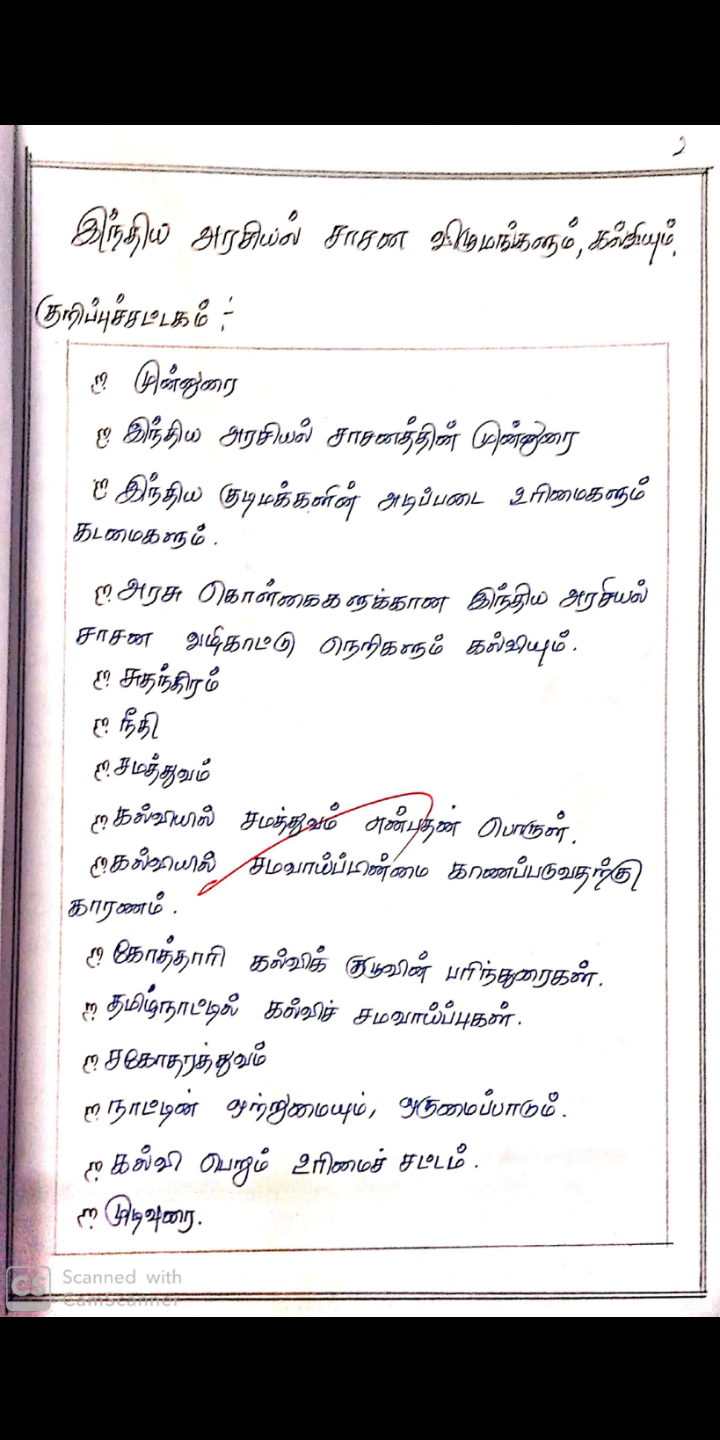 2
இந்திய அரசியல் சாசன விழுமங்களும், கல்வியும்.
குறிப்புச்சட்டகம் :-
முன்னுரை
இந்திய அரசியல் சாசனத்தின் முன்னுரை
இந்திய குடிமக்களின் அடிப்படை உரிமைகளும்
கடமைகளும்.
அரசு கொள்கைகளுக்கான இந்திய அரசியல்
சாசன வழிகாட்டு நெறிகளும் கல்வியும்.
சுதந்திரம்
நீதி
சமத்துவம்
கல்வியில் சமத்துவம் என்பதன் பொருள்.
கல்வியில் சமவாய்ப்பின்மை காணப்படுவதற்கு
காரணம்.
கோத்தாரி கல்விக் குழுவின் பரிந்துரைகள்.
தமிழ்நாட்டில் கல்விச் சமவாய்ப்புகள்.
சகோதரத்துவம்
நாட்டின் ஒற்றுமையும், ஒருமைப்பாடும்.
கல்வி பெறும் உரிமைச் சட்டம்.
முடிவுரை.
CS Scanned with
CamScanner